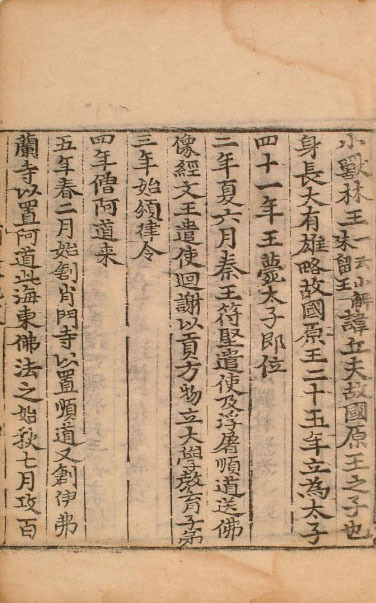 小獸林王云小解朱留王諱丘夫故國原王之子也
身長大有雄略故國原王二十五年立為太子
四十一年王薨太子即位
二年夏六月秦王符堅遣使及浮屠順道送佛
像經文王遣使迴謝以貢方物立大學敎育子弟
三年始頒律令
四年僧阿道来
五年春二月始創肖門寺以置順道又創伊弗
蘭寺以置阿道此海東佛法之始秋七月攻百